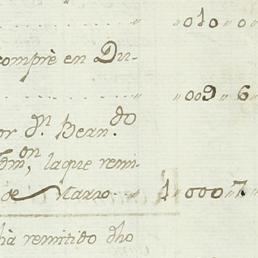 „ 010 „ 0 „
comprè en Du-
„ 009 „ 6 „
or Dn. Berndo
on, la que remi-
de Marzo „ 1„ 000„ 7„
ha remitido dho